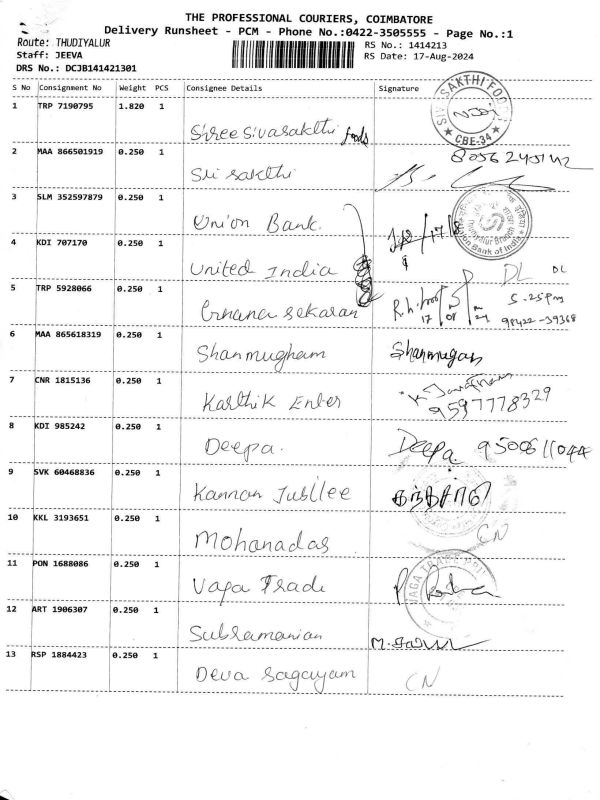 THE PROFESSIONAL COURIERS, COIMBATORE
Delivery Runsheet - PCM - Phone No.:0422-3505555 - Page No.:1
Route: THUDIYALUR RS No.: 1414213
Staff: JEEVA RS Date: 17-Aug-2024
DRS No.: DCJB141421301
S No Consignment No Weight PCS Consignee Details Signature
1 TRP 7190795 1.820 1 Shree Sivasakthi foods
CBE-34
2 MAA 866501919 0.250 1 Sri sakthi
3 SLM 352597879 0.250 1 Union Bank.
Union Bank of India
4 KDI 707170 0.250 1 United India
DL DL
5 TRP 5928066 0.250 1 Gnana sekaran
5-25pm
98422-39368
6 MAA 865618319 0.250 1 Shanmugham Shanmugam
7 CNR 1815136 0.250 1 Karthik Enter
9597778329
8 KDI 985242 0.250 1 Deepa. Deepa 9500611044
9 SVK 60468836 0.250 1 Kannan Jubilee
10 KKL 3193651 0.250 1 Mohanadas CN
11 PON 1688086 0.250 1 Vaga Trade
12 ART 1906307 0.250 1 Subramanian
13 RSP 1884423 0.250 1 Deva sagayam CN